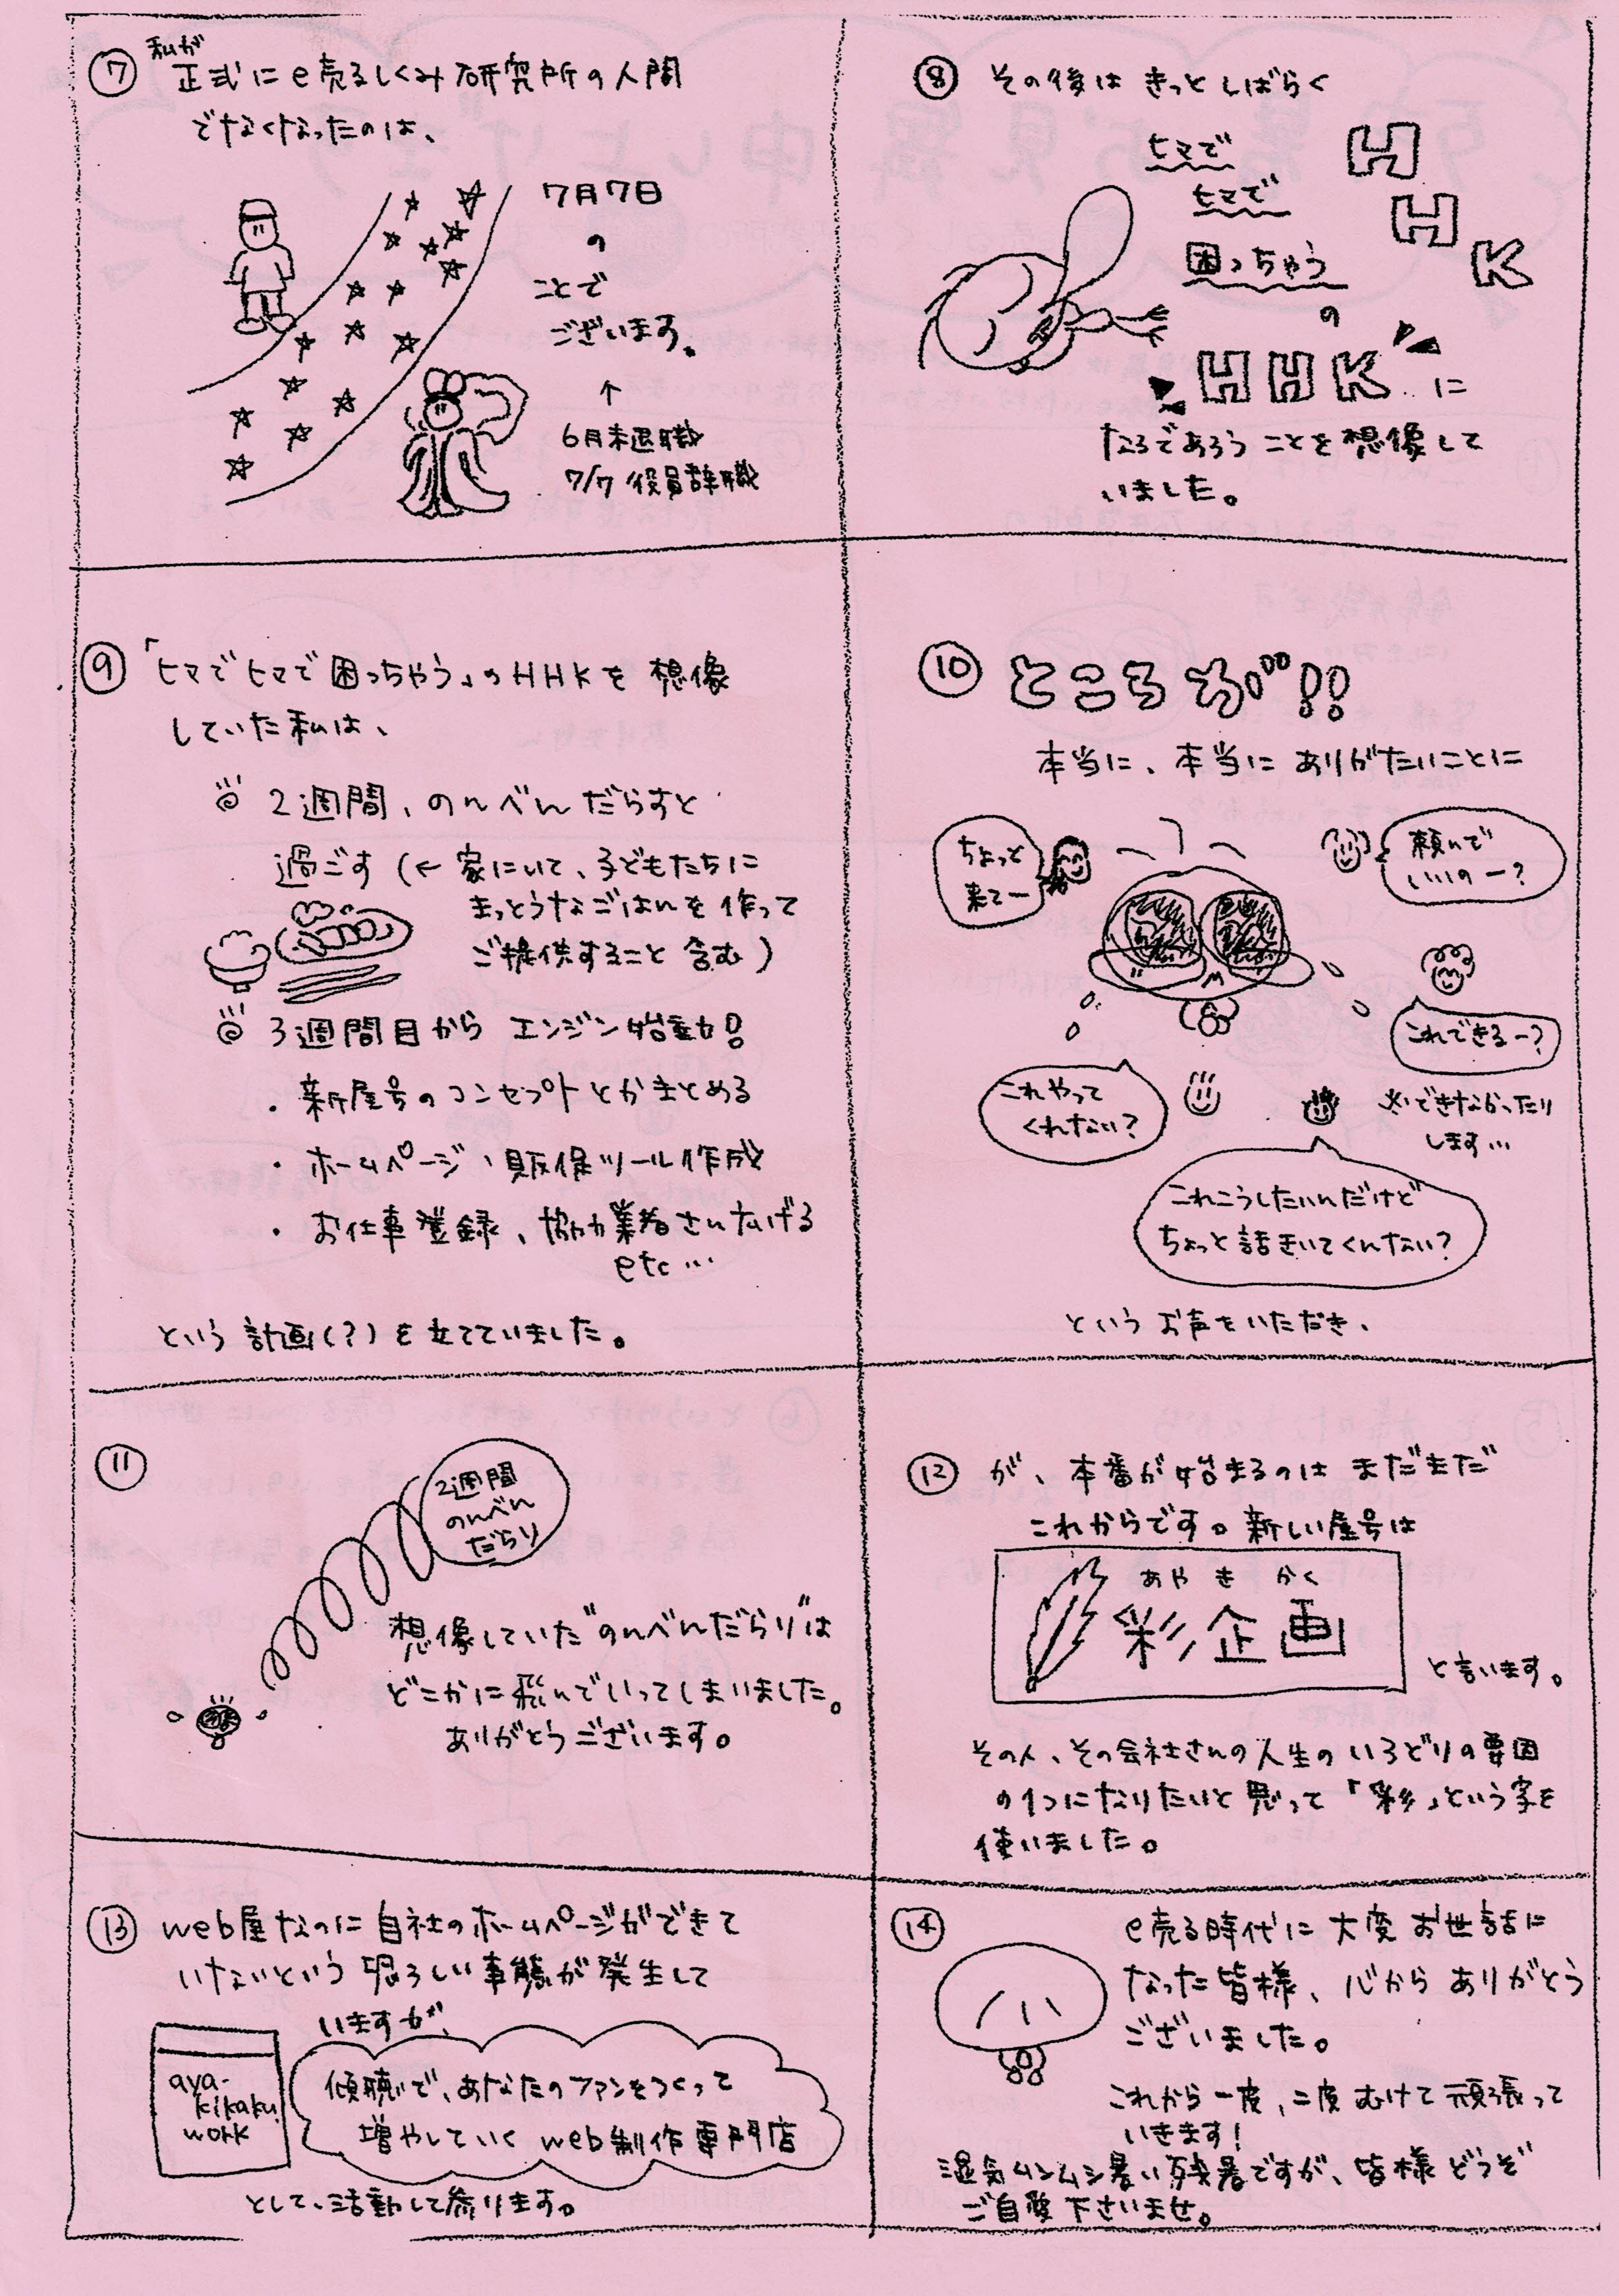 ⑦ 私が
正式にe売るしくみ研究所の人間
でなくなったのは、
7月7日
の
ことで
ございます。
↑
6月末退職
7/7 役員辞職
⑧ その後は きっと しばらく
ヒマで H
ヒマで H
困っちゃう K
の
HHK に
なるであろう ことを想像して
いました。
⑨ 「ヒマでヒマで困っちゃう」のHHKを 想像
していた私は、
2週間、のんべんだらりと
過ごす (← 家にいて、子どもたちに
まっとうなごはんを 作って
ご提供すること 含む)
3週間目から エンジン始動!
・新屋号のコンセプトとかまとめる
・ホームページ、販促ツール作成
・お仕事登録、協力業者さんなげる
etc…
という 計画(?)を立てていました。
⑩ ところが!!
本当に、本当に ありがたいことに
ちょっと
来てー
頼んで
いいのー?
これできるー?
これやって
くれない?
※できなかったり
します…
これこうしたいんだけど
ちょっと話きいてくんない?
という お声をいただき、
⑪
2週間
のんべん
だらり
想像していた"のんべんだらり"は
どこかに飛んでいってしまいました。
ありがとうございます。
⑫ が、本番が始まるのは まだまだ
これからです。新しい屋号は
あや き かく
彩企画
と言います。
その人、その会社さんの人生の いろどりの要因
の1つになりたいと思って「彩」という字を
使いました。
⑬ web屋なのに 自社のホームページができて
いないという 恐ろしい事態が発生して
いますが、
aya-
kikaku.
work
傾聴で、あなたのファンをつくって
増やしていく web制作専門店
として、活動して参ります。
⑭ e売る時代に 大変 お世話に
なった皆様、心から ありがとう
ございました。
これから 一度、二度 むけて 頑張って
いきます!
湿気ムンムン暑い残暑ですが、皆様 どうぞ
ご自愛 下さいませ。